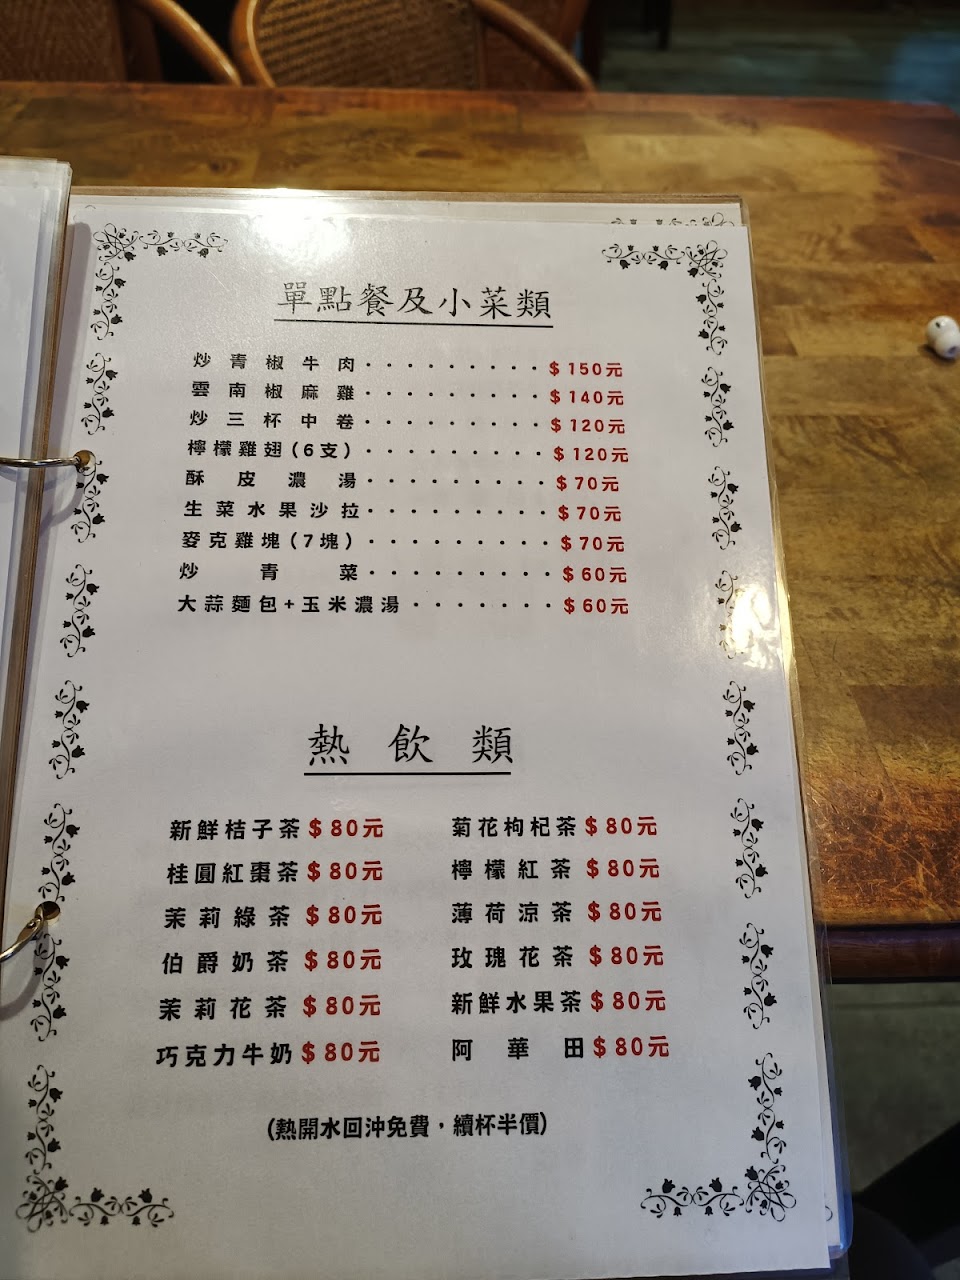 單點餐及小菜類
炒青椒牛肉・・・・・・・・・・$150元
雲南椒麻雞・・・・・・・・・・$140元
炒三杯中卷・・・・・・・・・・$120元
檸檬雞翅(6支)・・・・・・・・・・$120元
酥皮濃湯・・・・・・・・・・$70元
生菜水果沙拉・・・・・・・・・・$70元
麥克雞塊(7塊)・・・・・・・・・・$70元
炒青菜・・・・・・・・・・$60元
大蒜麵包+玉米濃湯・・・・・・・$60元
熱飲類
新鮮桔子茶$80元 菊花枸杞茶$80元
桂圓紅棗茶$80元 檸檬紅茶$80元
茉莉綠茶$80元 薄荷涼茶$80元
伯爵奶茶$80元 玫瑰花茶$80元
茉莉花茶$80元 新鮮水果茶$80元
巧克力牛奶$80元 阿華田$80元
(熱開水回沖免費，續杯半價)